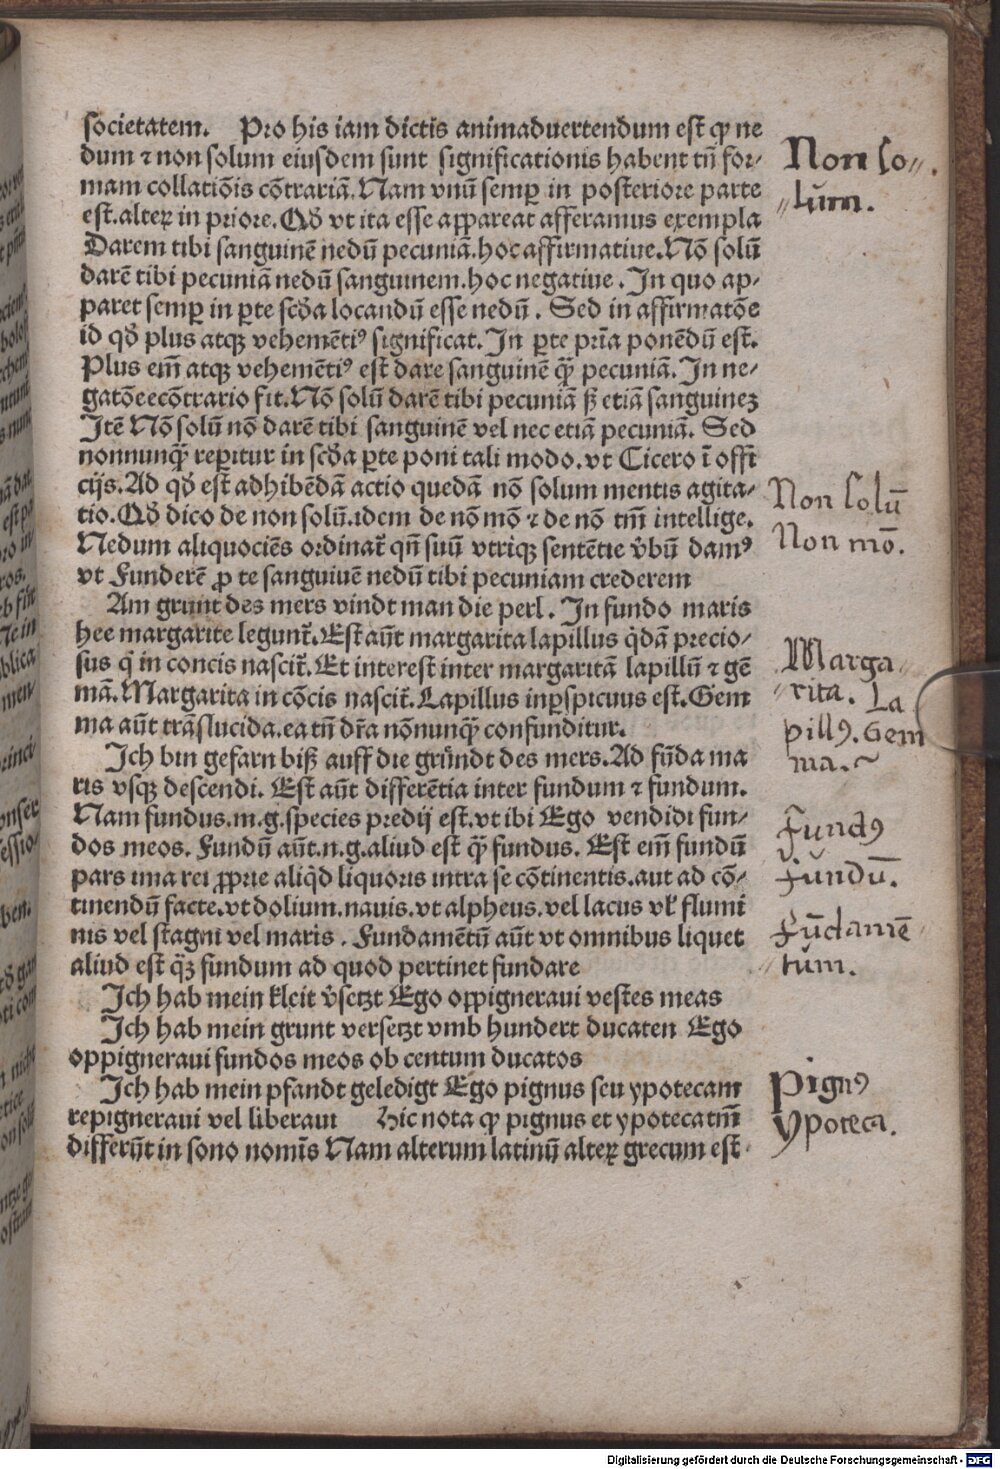 societatem. Pro his iam dictis animaduertendum est ꝙ ne
dum ⁊ non solum eiusdem sunt significationis habent tn̄ for⸗
mam collatiōis cōtrariā. Nam vnū semꝑ in posteriore parte
est. alteꝝ in priore. Qđ vt ita esse appareat afferamus exempla
Darem tibi sanguinē nedū pecuniā. hoc affirmatiue. Nō solū
darē tibi pecuniā nedū sanguinem. hoc negatiue. In quo ap⸗
paret semꝑ in ꝑte scđa locandū esse nedū. Sed in affirmatōe
id qđ plus atqꝫ vehemētiꝰ significat. In ꝑte pr̄ia ponēdū est.
Plus em̄ atqꝫ vehemētiꝰ est dare sanguinē ꝙ̄ pecuniā. In ne⸗
gatōe ecōtrario fit. Nō solū darē tibi pecuniā ß etiā sanguinez
Itē Nō solū nō darē tibi sanguinē vel nec etiā pecuniā. Sed
nonnunꝙ̄ reperitur in scđa ꝑte poni tali modo. vt Cicero ī offi
cijs. Ad qđ est adhibēdā actio quedā nō solum mentis agita⸗
tio. Qđ dico de non solū. idem de nō mō ⁊ de nō tm̄ intellige.
Nedum aliquociēs ordinat̄ qn̄ suū vtriꝙ sentētie v̄bū damꝰ
vt Funderē ꝓ te sanguiuē nedū tibi pecuniam crederem
Am grunt des mers vindt man die perl. In fundo maris
hee margarite legunt̄. Est aūt margarita lapillus q̇dā precio⸗
sus q̄ in concis nascit̄. Et interest inter margaritā lapillū ⁊ gē
mā. Margarita in cōcis nascit̄. Lapillus inꝑspicuus est. Gem
ma aūt trāslucida. ea tn̄ dr̄a nōnunꝙ̄ confunditur.
Ich bin gefarn biß auff die gründt des mers. Ad fūda ma
ris vsqꝫ descendi. Est aūt differētia inter fundum ⁊ fundum.
Nam fundus. m. g. species predij est. vt ibi Ego vendidi fun⸗
dos meos. Fundū aūt. n. g. aliud est ꝙ̄ fundus. Est em̄ fundū
pars ima rei ꝓprie aliq̇d liquoris intra se cōtinentis. aut ad cō⸗
tinendū facte. vt dolium. nauis. vt alpheus. vel lacus vl̄ flumi
nis vel stagni vel maris. Fundamētū aūt vt omnibus liquet
aliud est ꝙ̄ fundum ad quod pertinet fundare
Ich hab mein kleit v̄setzt Ego oppigneraui vestes meas
Ich hab mein grunt versetzt vmb hundert ducaten Ego
oppigneraui fundos meos ob centum ducatos
Ich hab mein pfandt geledigt Ego pignus seu ypotecam
repigneraui vel liberaui Hic nota ꝙ pignus et ypoteca tm̄
differūt in sono nomīs Nam alterum latinū alteꝝ grecum est
Non so⸗.
⸗lum.
Non solū
Non mō.
Marga⸗
⸗rita. La
pillꝰ. Gem
ma.~
Fundꝰ
Fundū.
Fūdamē
⸗tum.
Pignꝰ
Ypoteca.
Digitalisierung gefördert durch die Deutsche Forschungsgemeinschaft - DFG